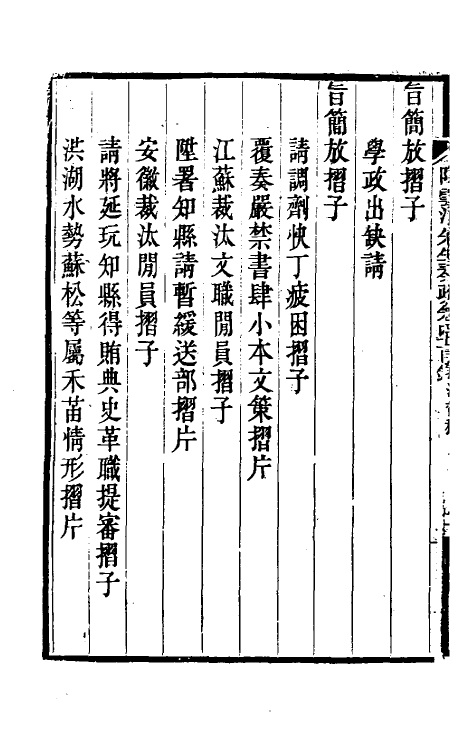 旨簡放摺子
學政出缺請
旨簡放摺子
請調劑快丁疲困摺子
覆奏嚴禁書肆小本文策摺片
江蘇裁汰文職閒員摺子
陞署知縣請暫緩送部摺片
安徽裁汰閒員摺子
請將延玩知縣得賄典史革職提審摺子
洪湖水勢蘇松等屬禾苗情形摺片